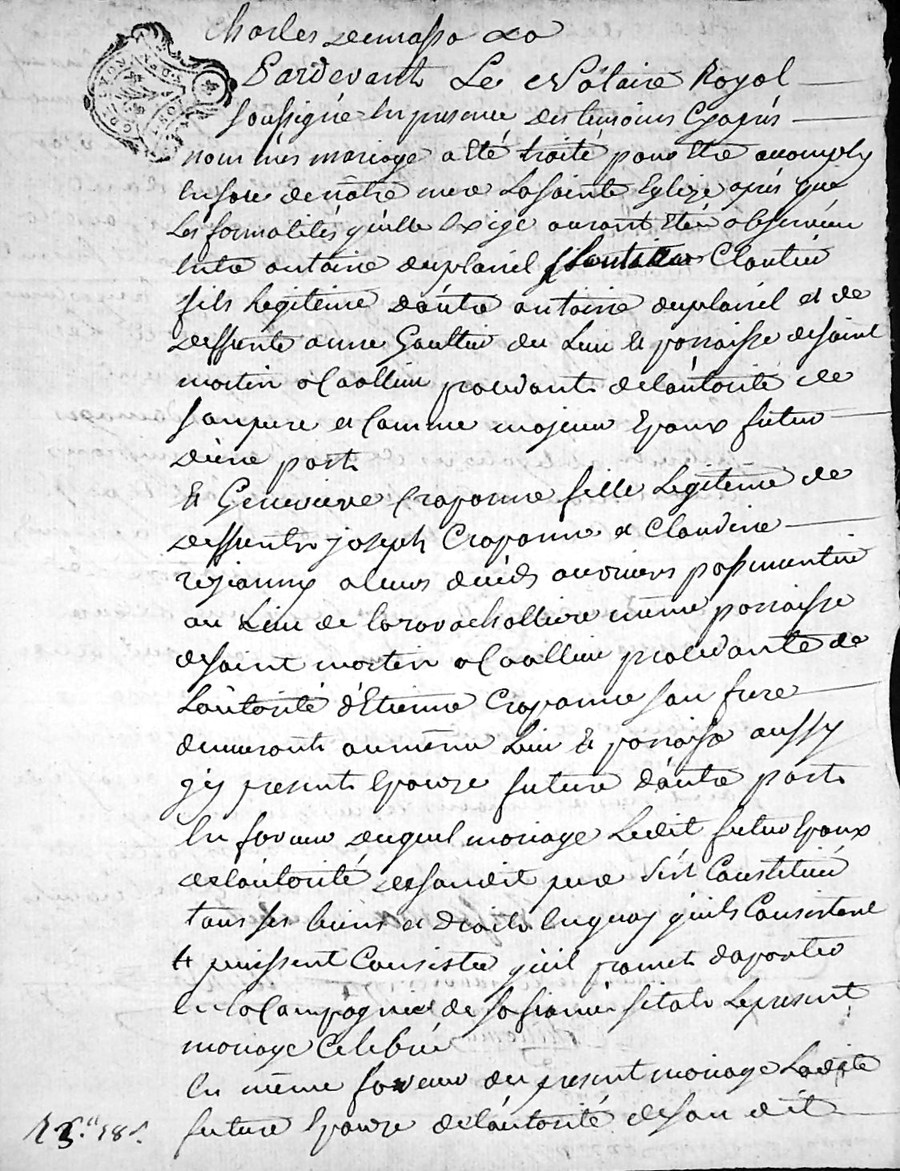 Pardevant Le Notaire Royal
soussigné En presence des temoins Cy apres
nommés mariage a été traité pour Etre accomply
En face de nôtre mere La sainte Eglize aprés que
Les formalités qu'elle Exige auront Eté observées
Entre antoine duplainel Cloutier
fils Legitime d'autre antoine duplainel et de
deffunte anne Gaultier du Lieu & parroisse de saint
martin aCoallieu procedant de L'autorité de
son pere et Comme majeur Epoux futur
d'une part
Et Genevieve Craponne fille Legitime de
deffunts joseph Craponne et Claudine
a leurs décés ouvriers passmentier
au Lieu de même parroisse
de saint martin aCoallieu procedante de
L'autorité d'Etienne Craponne son frere
demeurant au même Lieu & parroisse aussy
y present Epouze future d'autre part
En faveur duquel mariage Ledit futur Epoux
de L'autorité de son dit pere s'est Constitué
tous ses biens et droits En quoy qu'ils Consistent
& puissent Consister qu'il promet d'aporter
En la Compagnie de sa fiancée sitôt Le present
mariage Celebré
En même faveur du present mariage Ladite
future Epouze de L'autorité de son dit